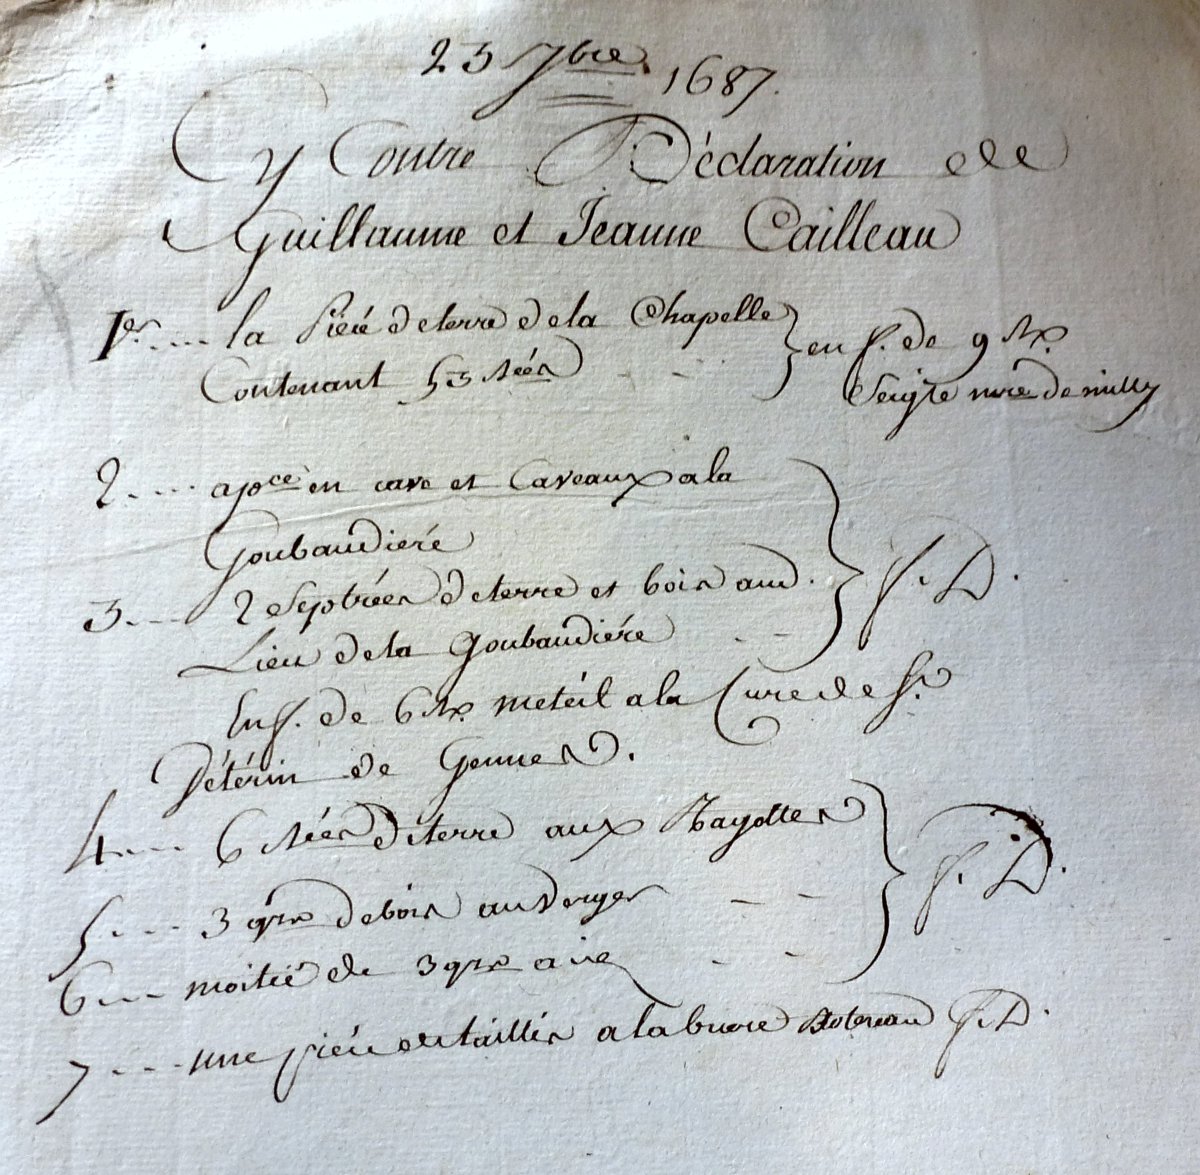 23 7bre. 1687.
Cy Contre Déclaration de
Guillaume et Jeanne Cailleau
1er.... la Piéce de terre de la Chapelle
Contenant 53 } en f. de 9
Seigle mre de milly
2.... en cave et Caveaux a la
Goubaudiere
3.... 2 Septrées de terre et bois aud.
Lieu de la Goubaudiére } f. D.
En f. de 6 metéil a la Cure de St.
Vétérin de Gennes.
4.... 6 de terre aux
5.... 3 qrx de bois au Verger
6.... moitié de 3 qrx } f. D.
7.... une piéce de taillis a la f. D.